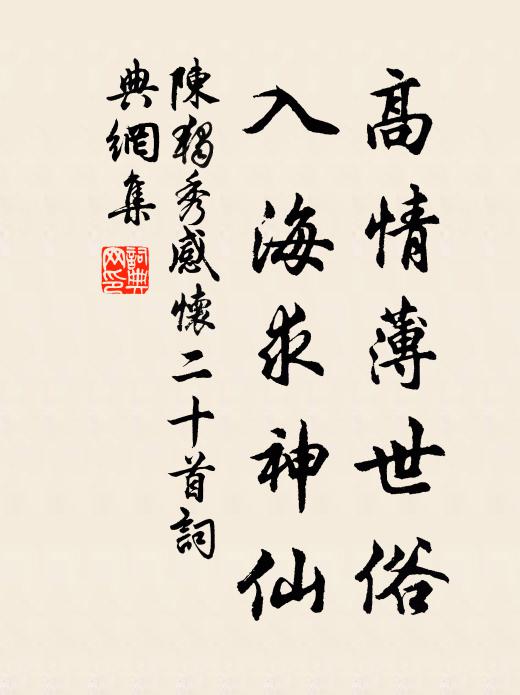 高情薄世俗
入海求神仙
陳獨秀感懷二十首詞
典網集
詞典
网印